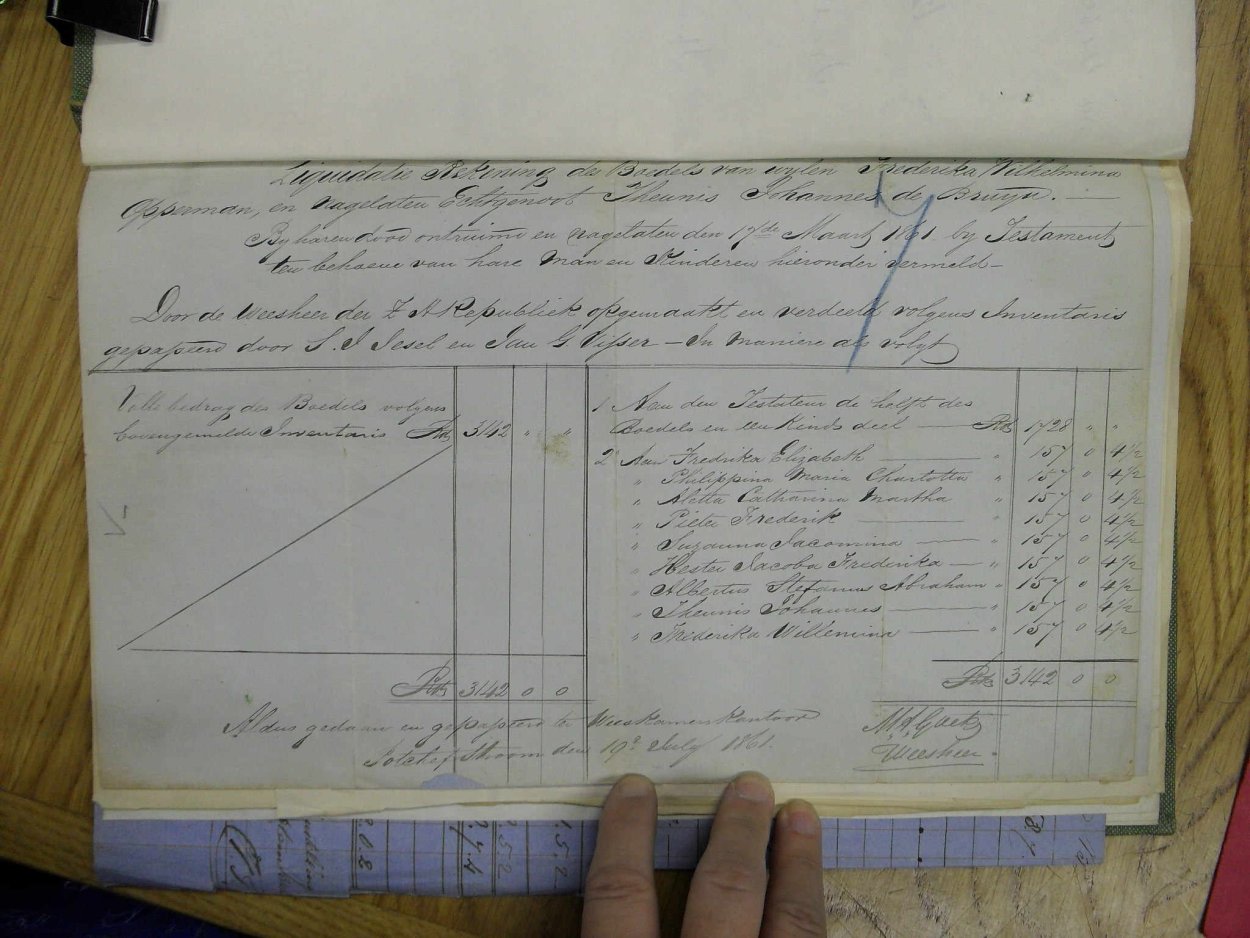 Liquidatie Rekening de Boedels van wylen Frederika Wilhelmina
Opperman, en nagelaten Echtgenoot Theunis Johannes de Bruyn. —
By haren dood ontruimd en nagelaten den 17de Maart 1861 by Testament
ten behoeve van hare Man en Kinderen hieronder vermeld —
Door de Weesheer der Z A Republiek opgemaakt en verdeeld volgens Inventaris
gepasseerd door S. J. Jesel en Jan G Visser — In maniere als volgt
Volle bedrag des Boedels volgens
bovengemelde Inventaris Rds 3142 " "
1 Aan den Testateur de helft des
Boedels en een Kinds deel — Rds 1728 " "
2 Aan Fredrika Elizabeth — " 157 0 4 1/2
" Philippina Maria Charlotta " 157 0 4 1/2
" Aletta Catharina Martha " 157 0 4 1/2
" Pieter Frederik — " 157 0 4 1/2
" Suzanna Jacomina — " 157 0 4 1/2
" Hester Jacoba Frederika — " 157 0 4 1/2
" Albertus Stefanus Abraham " 157 0 4 1/2
" Theunis Johannes — " 157 0 4 1/2
" Frederika Willemina — " 157 0 4 1/2
Rds 3142 0 0
Rds 3142 0 0
Aldus gedaan en gepasseerd te Weeskamerskantoor
Potchefstroom den 19e July 1861.
M. A. Goetz
Weesheer